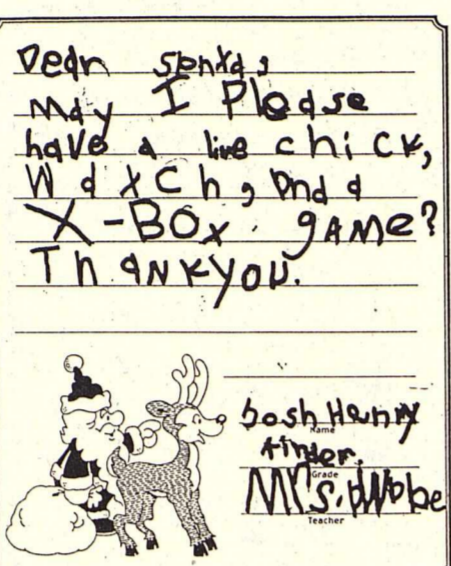 Dear Santa,
May I Please
have a live chick,
Watch, and a
X-Box game?
Thank you.
Josh Henry
Name
kinder.
Grade
Mrs.
Teacher